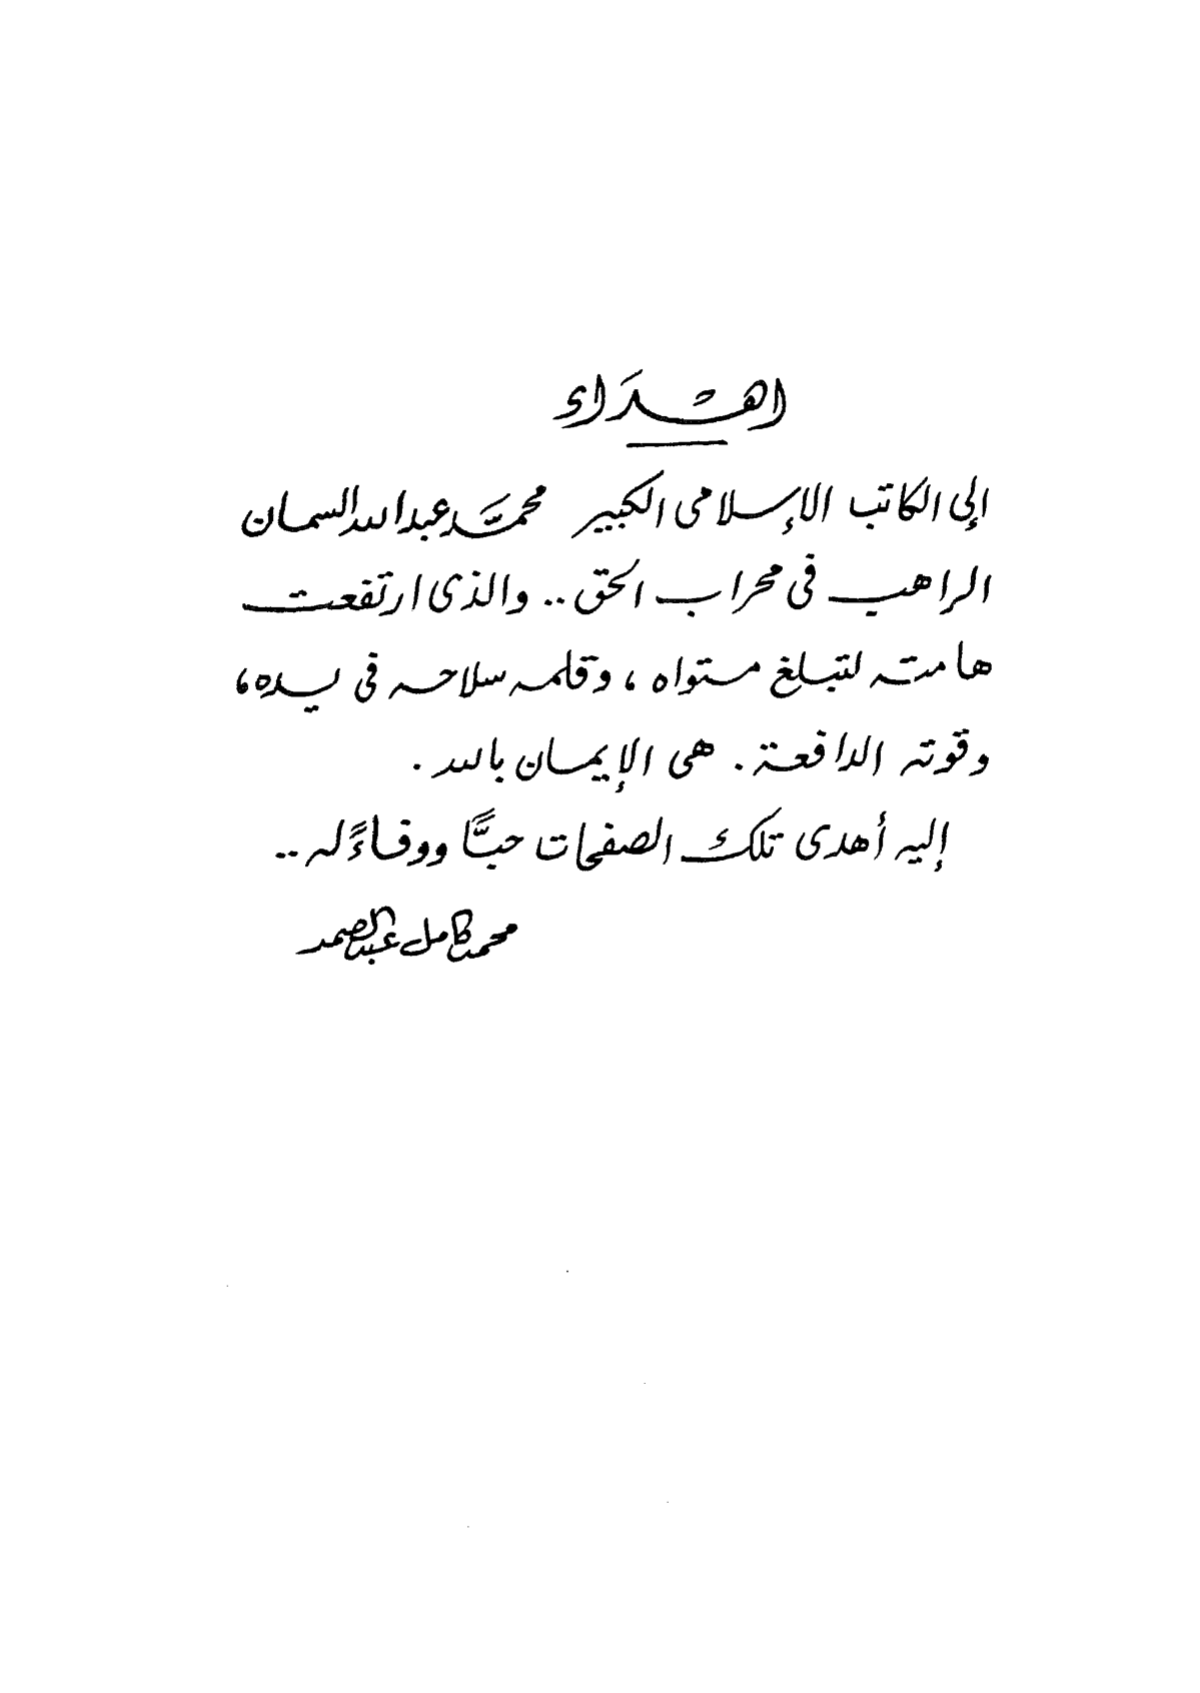 اهْدَاء
إلى الكاتب الإسلامى الكبير محمَّد عبد الله السمان
الراهب فى محراب الحق .. والذى ارتفعت
هامته لتبلغ مستواه ، وقلمه سلاحه فى يده ،
وقوته الدافعة . هى الإيمان بالله .
إليه أهدى تلك الصفحات حبًّا ووفاءً له ..
محمد كامل عبد الصمد